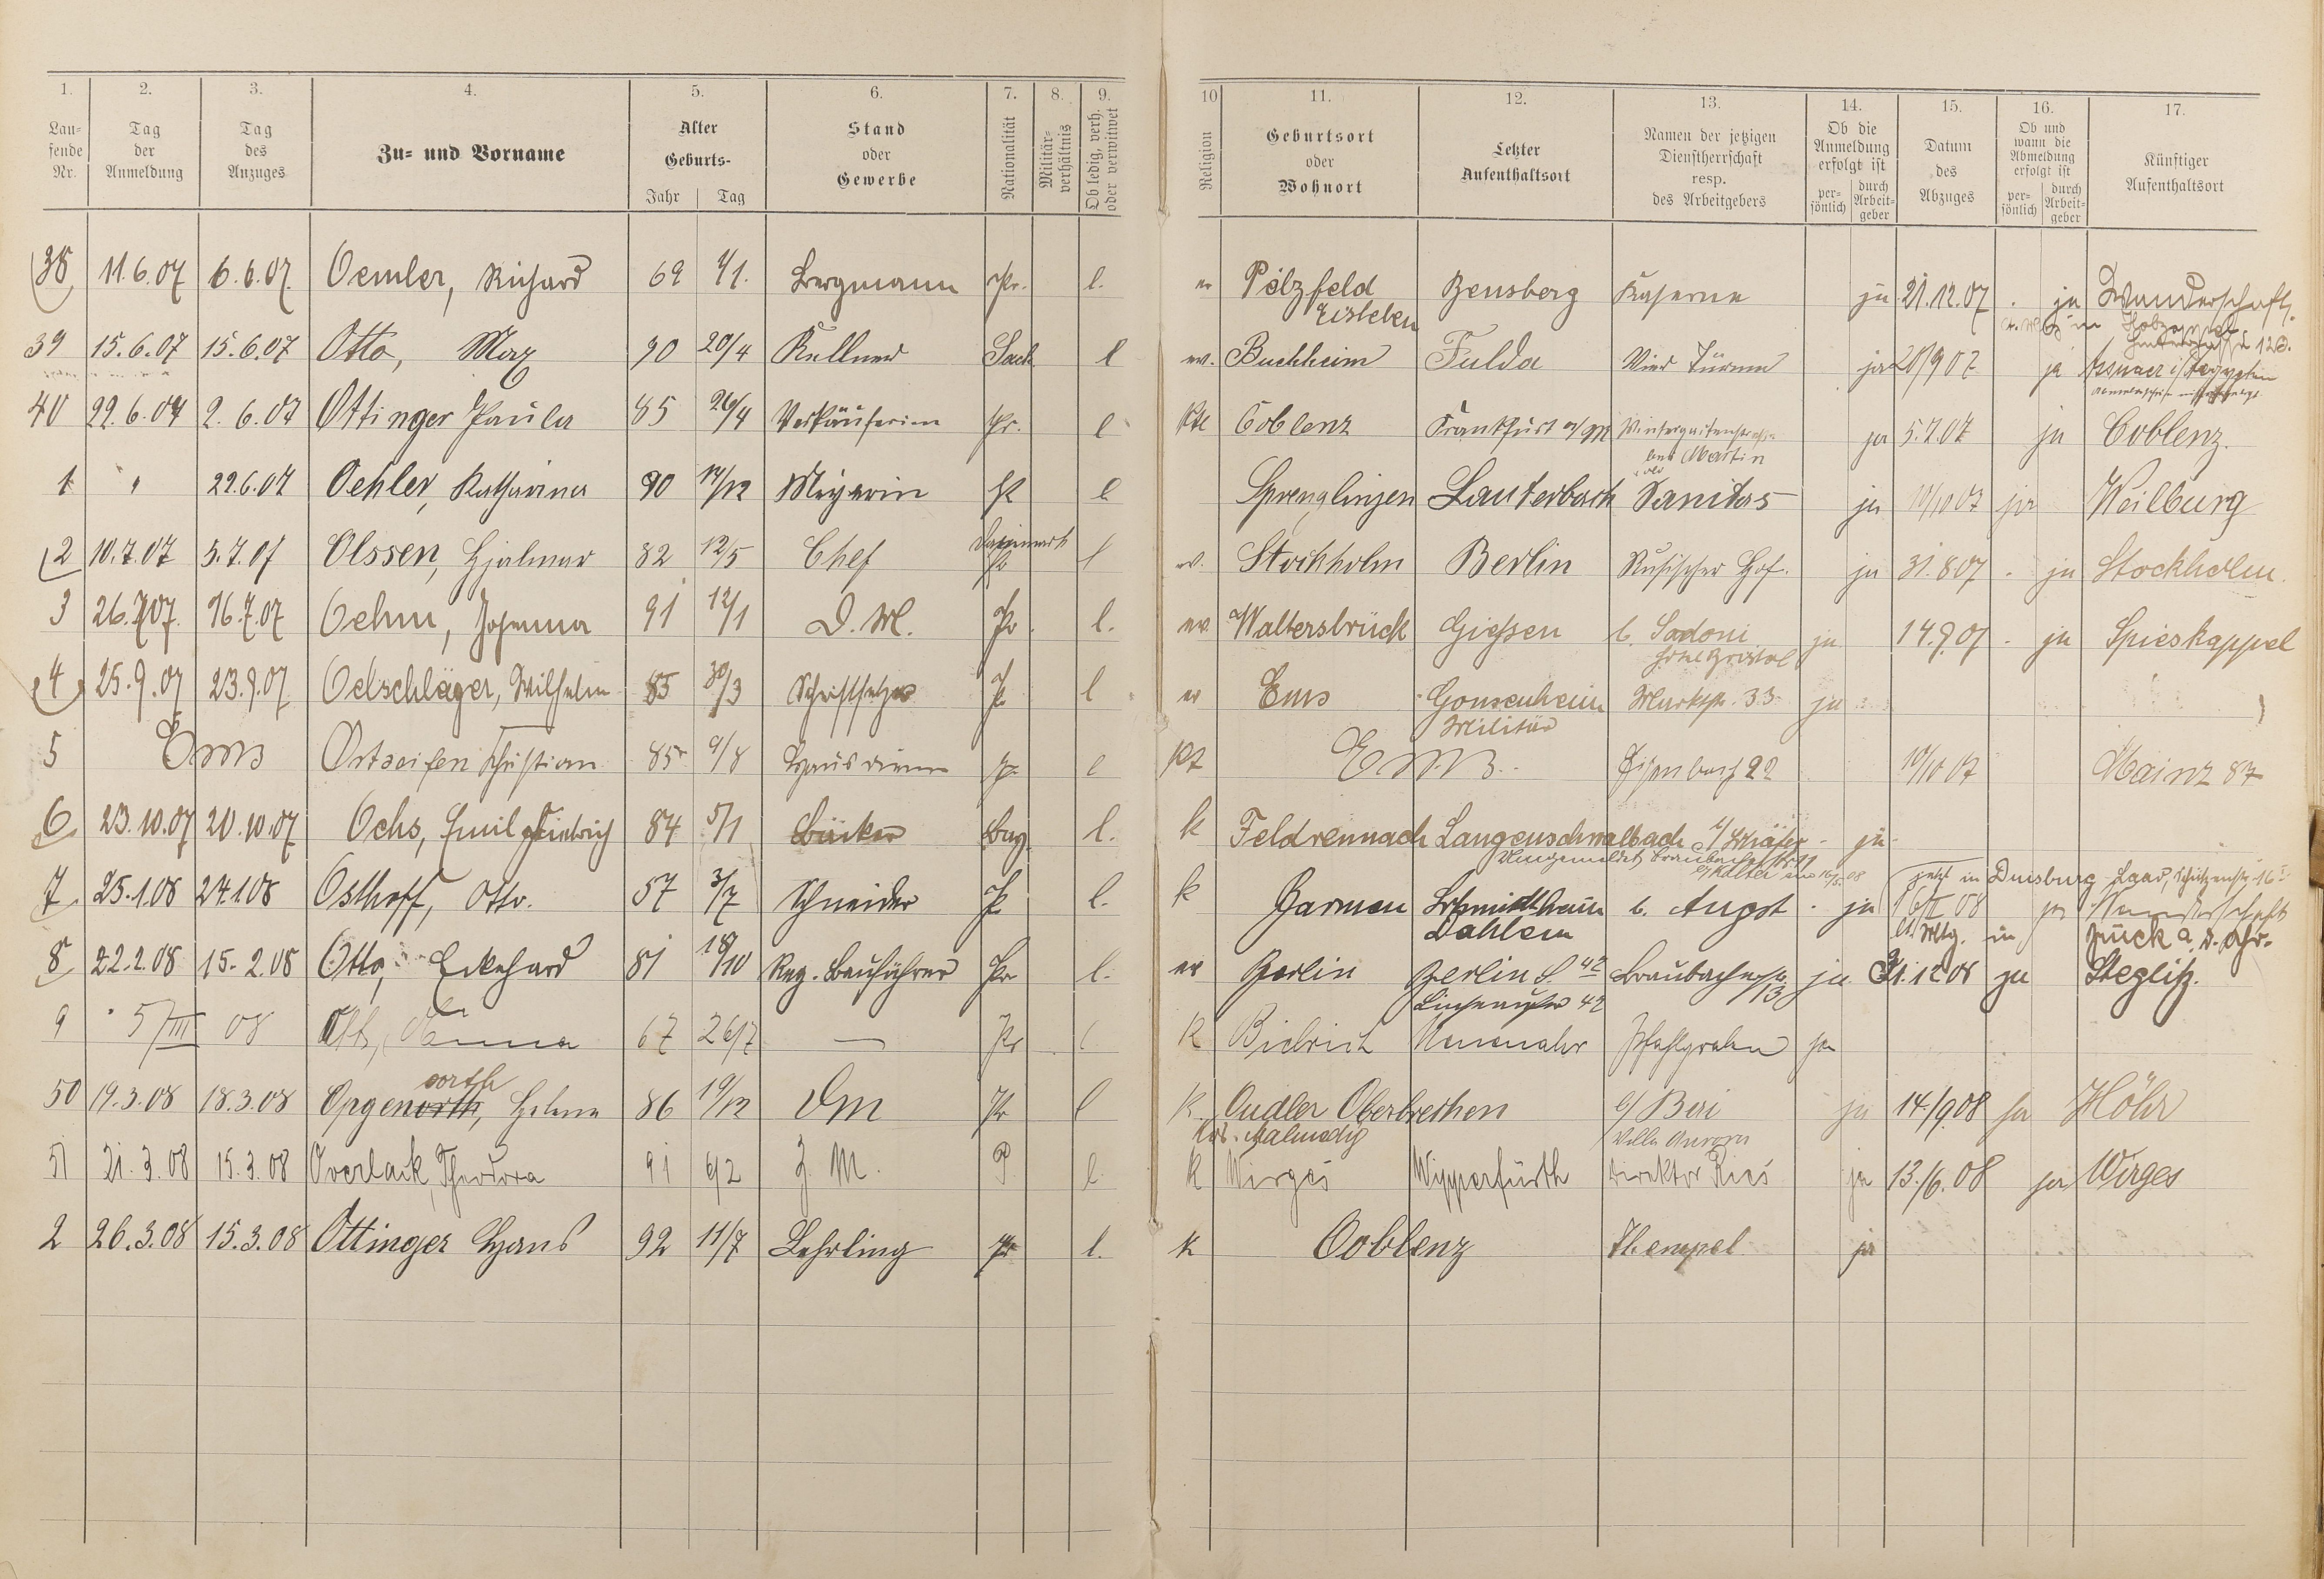 1. 2. 3. 4. 5. 6. 7. 8. 9. 10 11. 12. 13. 14. 15. 16. 17.
Laufende Nr. | Tag der Anmeldung | Tag des Anzuges | Zu- und Vorname | Alter Geburts- Jahr Tag | Stand oder Gewerbe | Nationalität | Militärverhältnis | Ob ledig, verh. oder verwitwet | Religion | Geburtsort oder Wohnort | Letzter Aufenthaltsort | Namen der jetzigen Dienstherrschaft resp. des Arbeitgebers | Ob die Anmeldung erfolgt ist persönlich durch Arbeitgeber | Datum des Abzuges | Ob und wann die Abmeldung erfolgt ist persönlich durch Arbeitgeber | Künftiger Aufenthaltsort
38 11.6.07 6.6.07. Oemler, Richard 69 4/1. Bergmann Pr. l. ev Pölzfeld Bensberg Kaserne ja 21.12.07 ja Wanderschaft.
Eisleben
39 15.6.07 15.6.07 Otto, Max 90 20/4 Kellner Sach l ev. Buchheim Fulda Vier Türme ja 28/9 07 ja
40 22.6.07 2.6.07 Ottinger Paula 85 26/4 Verkäuferin Pr. l Kt Coblenz Frankfurt a/M ja 5.7.07 ja Coblenz.
Martin
1 " 22.6.07 Oehler, Katharina 90 17/12 l Sprenglingen Lauterbach Sanitas ja 10/10 07 ja Weilburg
2 10.7.07 5.7.07 Olssen, Hjalmar 82 12/5 Chef l ev. Stockholm Berlin Rusischer Hof. ja 31.8 07 ja Stockholm.
3 26.7.07. 16.7.07 Oehm, Johanna 91 12/1 D. M. Pr. l. ev. Waltersbrück Giessen b. Sadoni ja 14.9.07 ja Spieskappel
Hotel Bristol
4 25.9.07 23.9.07 Oelschläger, Wilhelm 85 30/3 Schriftsetzer P. l ev Ems Gonsenheim Marktstr. 33 ja
Militär
5 Ems Ortseifen Christian 85 9/8 Hausdiener Pr. l Kt Ems. Eisenbach 22 10/10 07 Mainz 87
6 23.10.07 20.10.07 Ochs, Emil Friedrich 84 5/1 Bäcker l. k Feldrennach Langenschwalbach ja
7 25.1.08 24.1.08 Osthoff, Otto. 57 3/7 Schneider P. l. k Barmen b. Augst ja 16/II 08 ja Wanderschaft
jetzt in Duisburg
Dahlem
8 22.2.08 15.2.08 Otto, Eckehard 81 18/10 Reg. Bauführer Pr l. ev Berlin Berlin S. 42 Braubacherstr. 13 ja 31.12 08 ja Steglitz.
9 5/III 08 67 26/7 — Pr l K Biebrich Neuenahr Pfahlgraben ja
50 19.3.08 18.3.08 Opgenorth, Helene 86 19/12 Dm Pr l K. Oudler Oberbrechen b/ Beri ja 14./9 08 ja Höhr
oorth
Krs. Malmedy Villa Aurora
51 21.3.08 15.3.08 Overlack, Theodora 91 6/2 Z. M. P l. K Wirges Wipperfürth Direktor Ries ja 13./6.08 ja Wirges
2 26.3.08 15.3.08 Ottinger Hans 92 11/7 Lehrling Pr l. k Coblenz Thempel ja